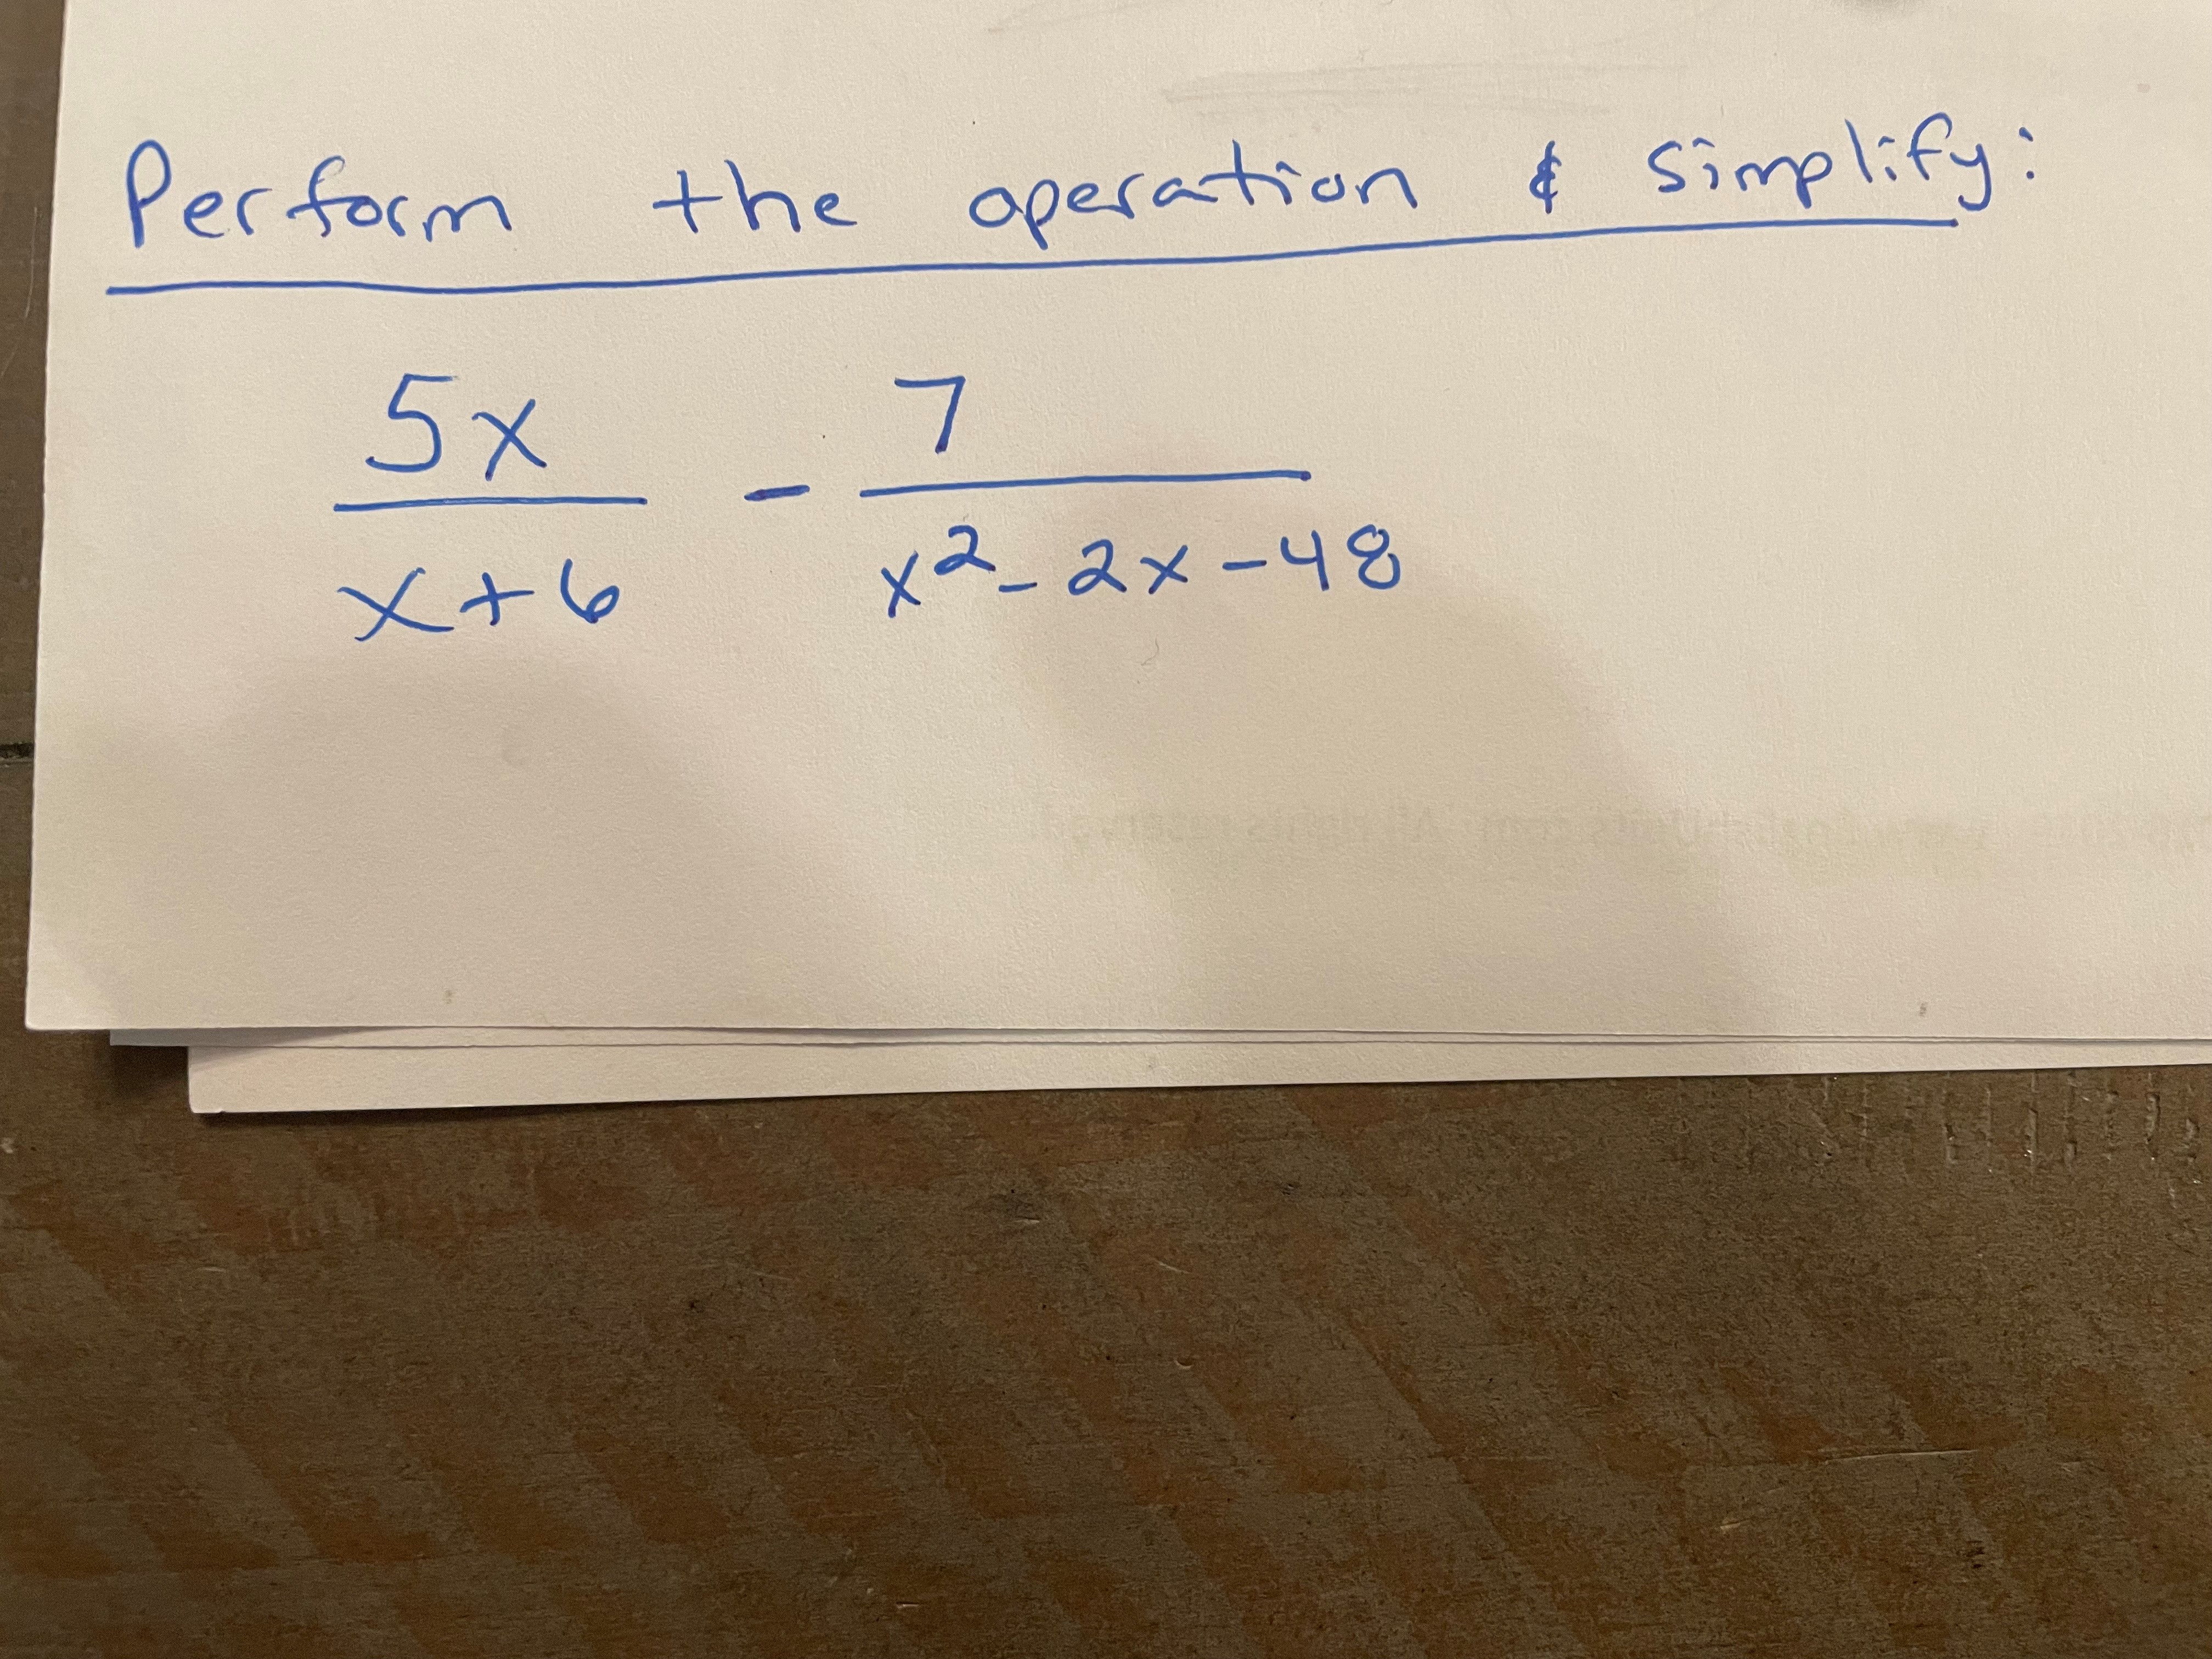 Perform the operation & simplify:
5x/(x+6) - 7/(x²-2x-48)